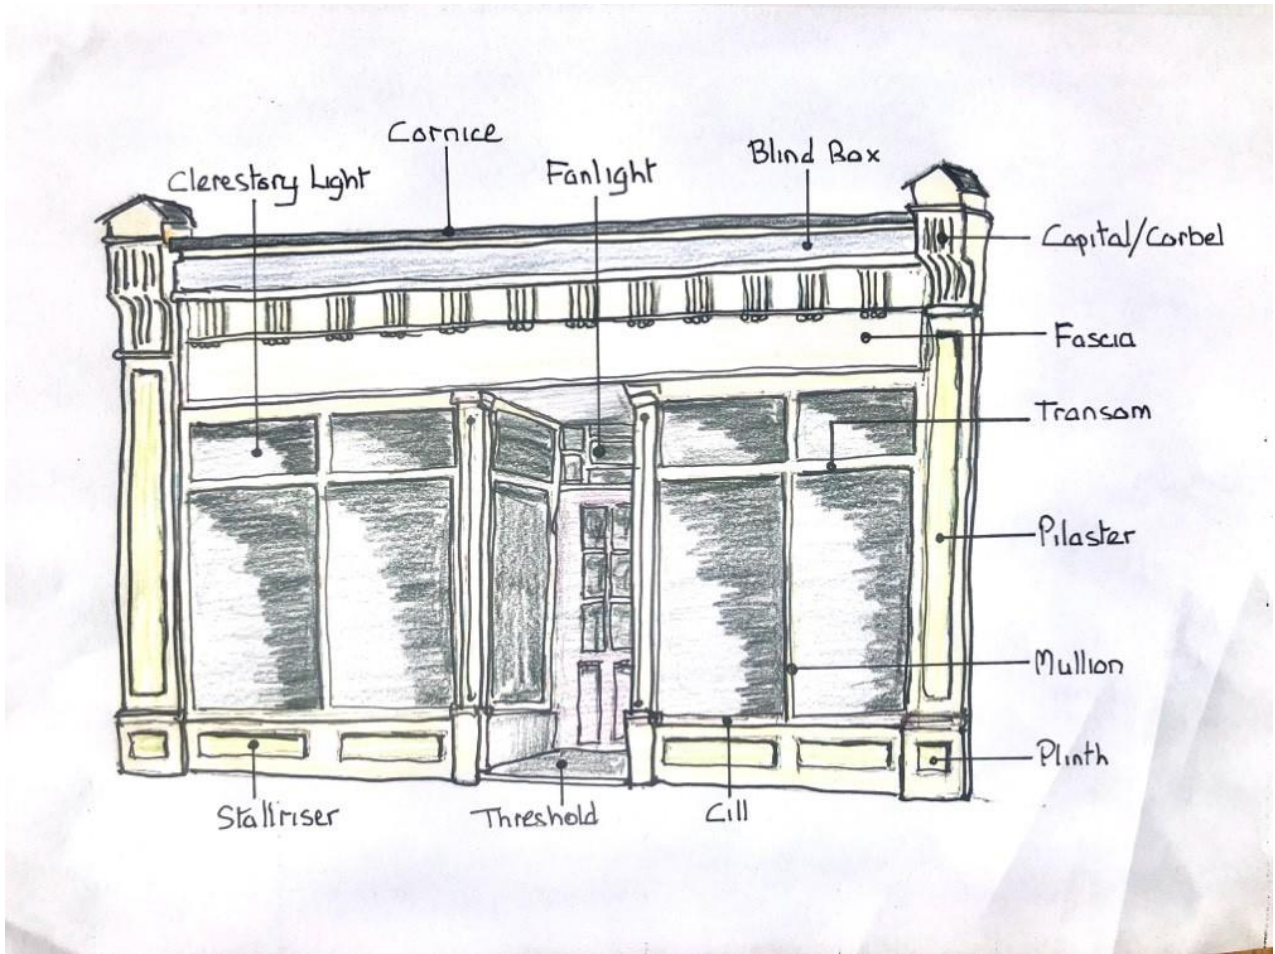 Cornice
Blind Box
Clerestory Light
Fanlight
Capital/Corbel
Fascia
Transom
Pilaster
Mullion
Plinth
Stallriser
Threshold
Cill